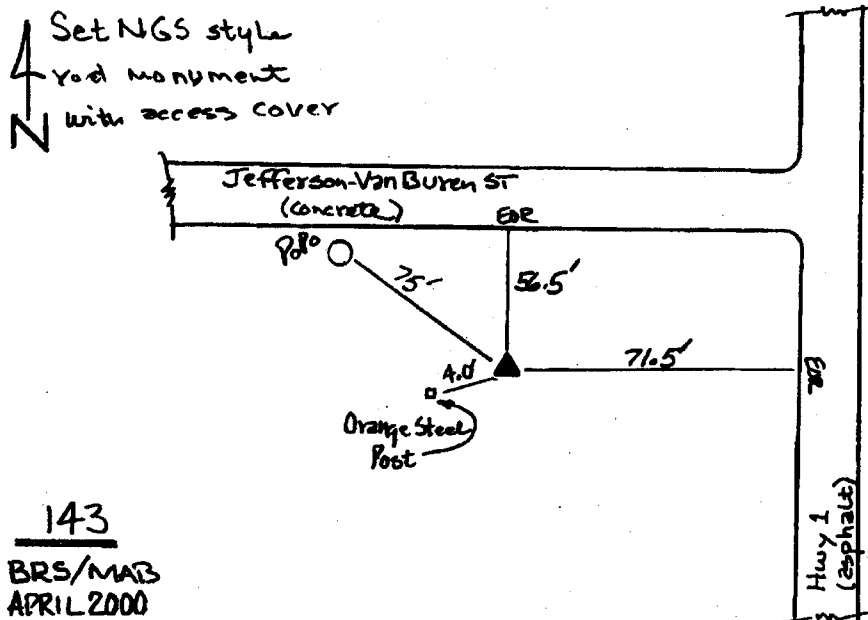 Set NGS style
rod monument
with access cover
N
Jefferson-Van Buren ST
(concrete)
EOR
75'
56.5'
71.5'
EOR
4.0'
Orange Steel
Post
Hwy 1
(asphalt)
143
BRS/MAB
APRIL 2000